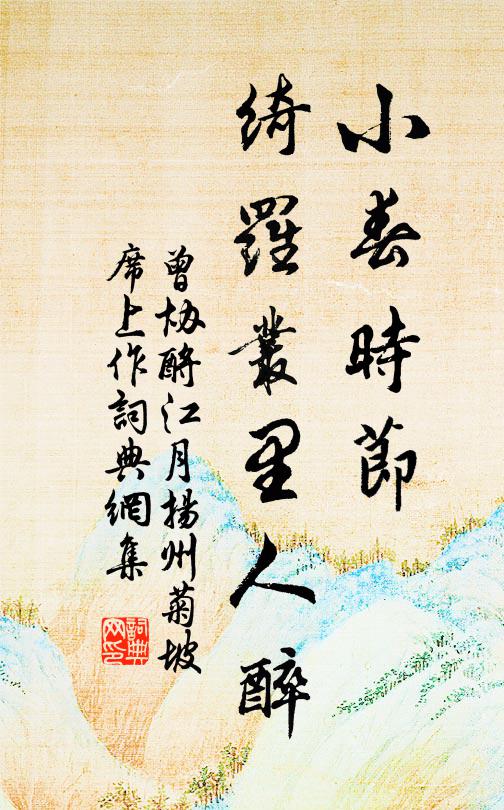 小春時節
綺羅叢里人醉
曾协酹江月揚州菊坡
席上作詞典網集
詞典网印